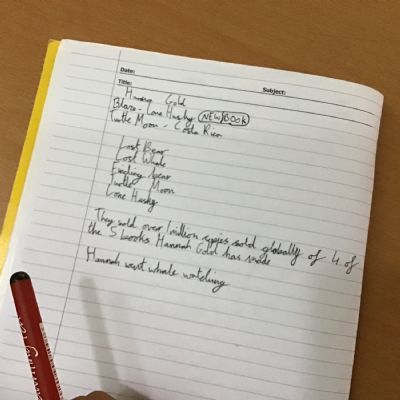 Date:
Title: Subject:
Hannah Gold
Blaze - Lone Husky NEW BOOK
Turtle Moon - Costa Rica
Lost Bear
Lost Whale
Finding Bear
Turtle Moon
Lone Husky
They sold over 1 million copies sold globally of 4 of
the 5 books Hannah Gold has made
Hannah went whale watching